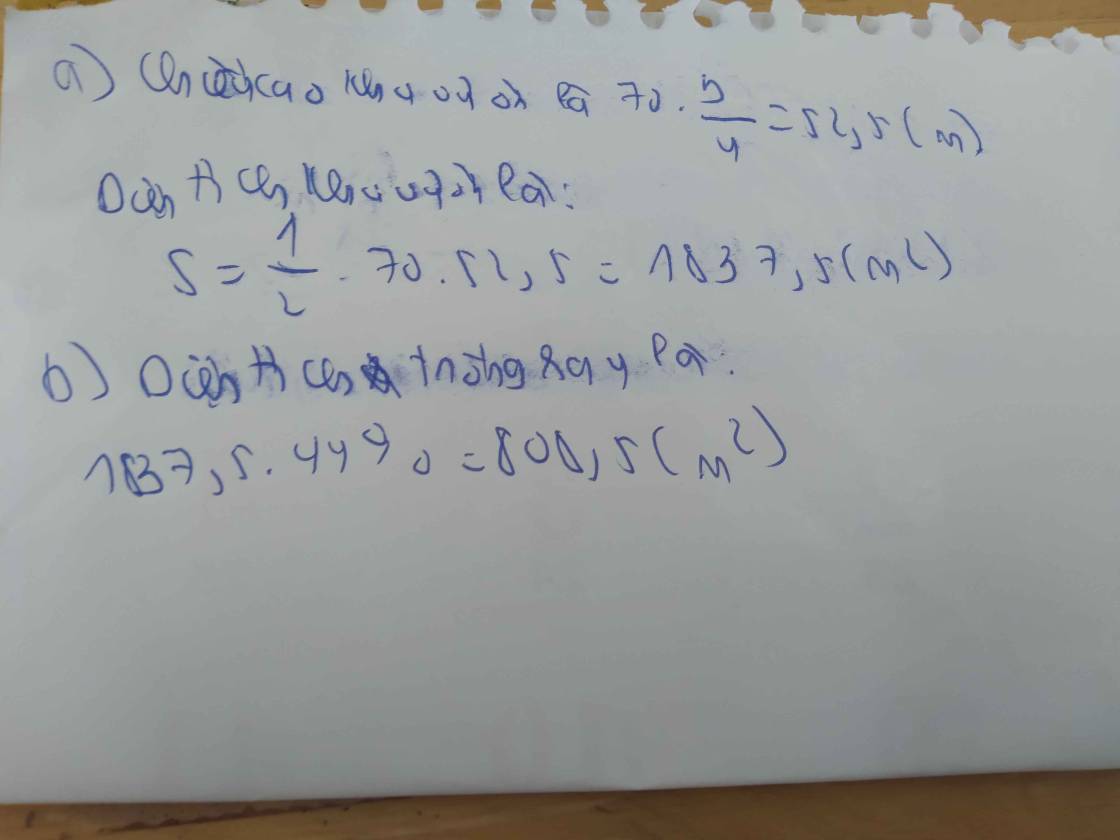 a) Chiều cao khu vườn là 70 . 3/4 = 52,5 (m)
Diện tích khu vườn là:
S = 1/2 . 70 . 52,5 = 1837,5 (m²)
b) Diện tích trồng xay là:
1837,5 . 44% = 808,5 (m²)